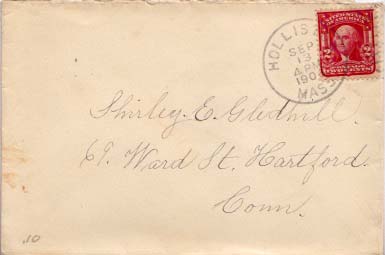 HOLLIS
SEP
13
4 PM
190
MASS.
UNITED STATES
OF AMERICA
2 2
TWO CENTS
Shirley E. Gledhill.
69 Ward St. Hartford.
Conn.
.10